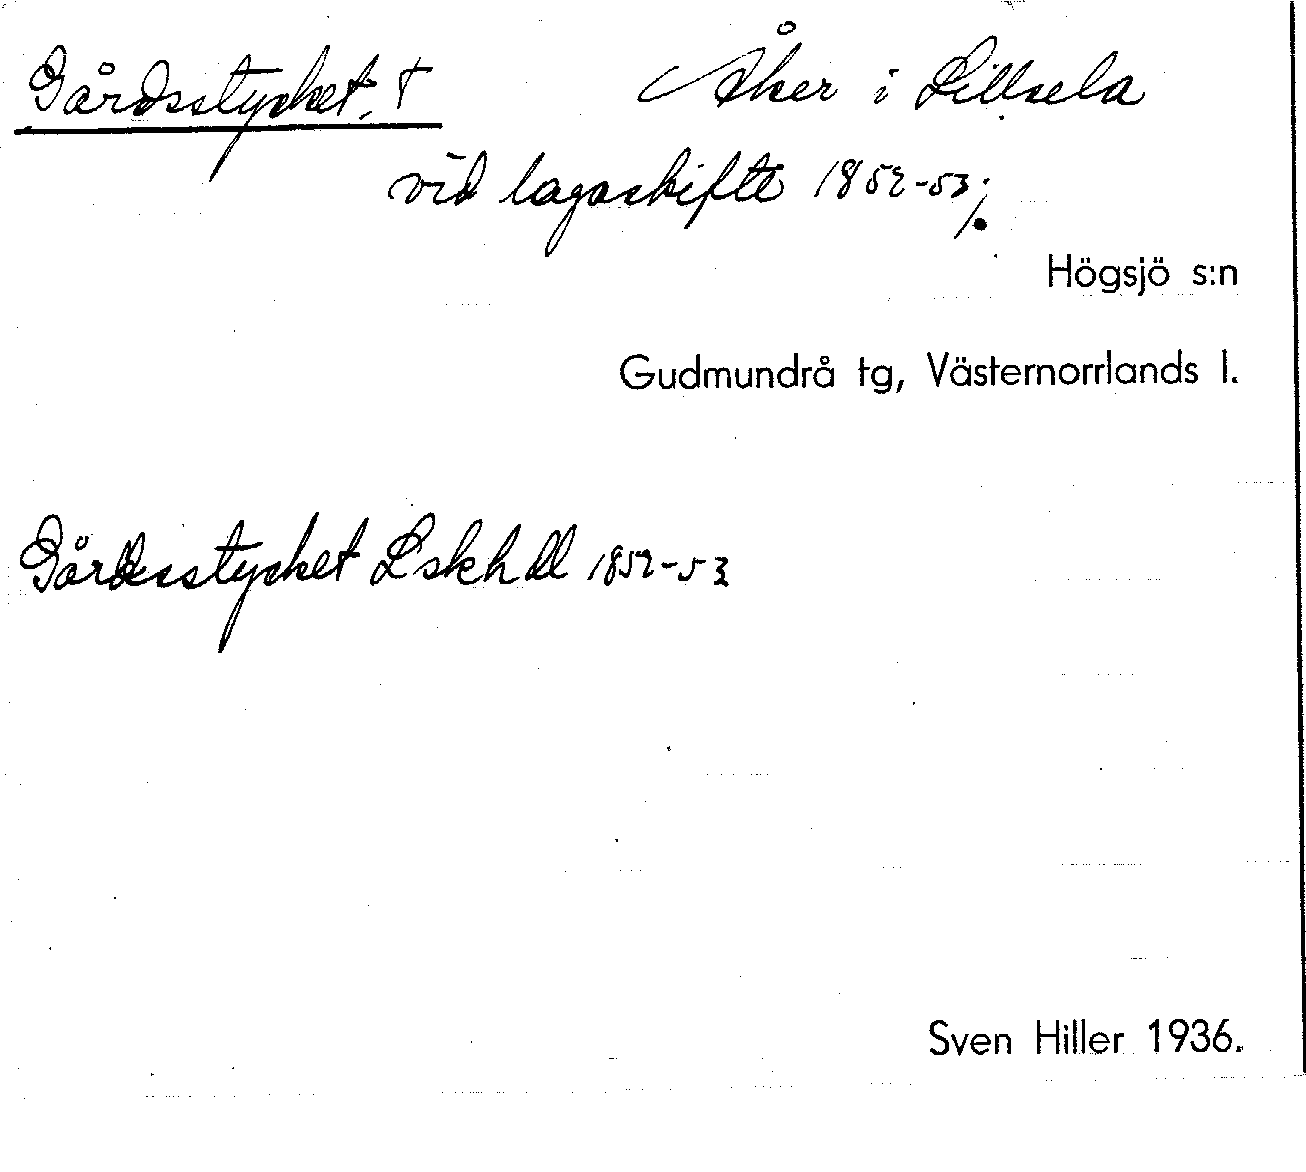 Gårdsstycket, † Åker i Lillsela
vid lagaskifte 1852-53;
Högsjö s:n
Gudmundrå tg, Västernorrlands l.
Gårdsstycket Lskhdl 1852-53
Sven Hiller 1936.